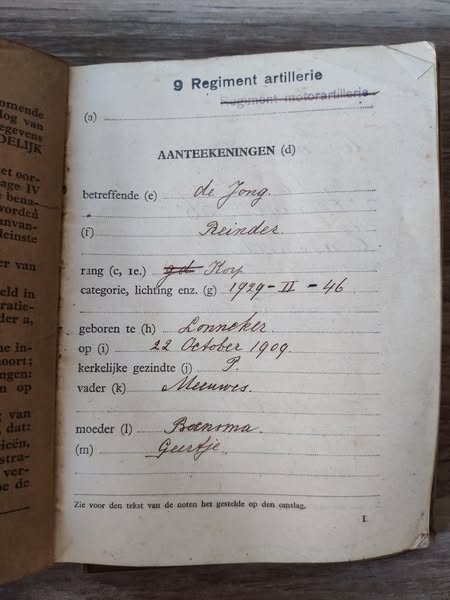 omende
log van
egevens
DELIJK
et oor-
age IV
t bena-
vorden
anvan-
leinste
er van
eld in
ratie-
der a,
ne in-
noort;
ingen:
en op
g van
dat:
rieën,
stra-
ver-
ne de
9 Regiment artillerie
Regiment motorartillerie
(a)
AANTEEKENINGEN (d)
betreffende (e) de Jong.
(f) Reinder.
rang (c, 1e.) gd Korp
categorie, lichting enz. (g) 1929-II-46
geboren te (h) Lonneker.
op (i) 22 October 1909.
kerkelijke gezindte (j) P.
vader (k) Meeuwes.
moeder (l) Boersma.
(m) Geertje.
Zie voor den tekst van de noten het gestelde op den omslag.
I.